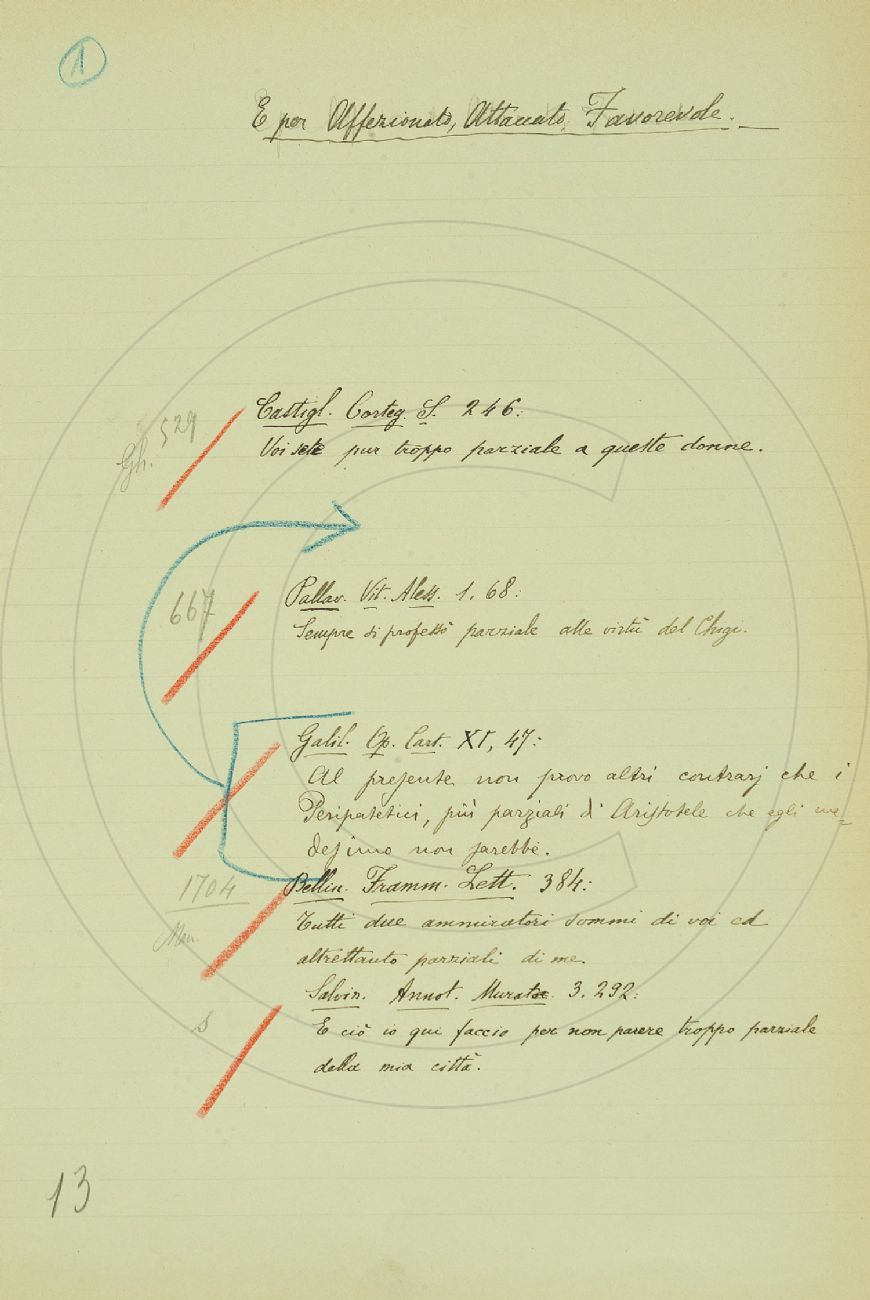 1
E per Affezionato, Attaccato, Favorevole.
Castigl. Corteg. S. 246:
529
Gh.
Voi sete pur troppo parziale a queste donne.
667
Pallav. Vit. Aless. 1. 68:
Sempre si professò parziale alle virtù del Chigi.
Galil. Op. Cart. XI, 47:
Al presente non provo altri contrarj che i
Peripatetici, più parziali di Aristotele che egli me-
desimo non sarebbe.
1704
Bellin. Framm. Lett. 384:
Tutti due ammiratori sommi di voi ed
altrettanto parziali di me.
Salvin. Annot. Murat. 3. 292:
s
E ciò io qui faccio per non parere troppo parziale
della mia città.
13